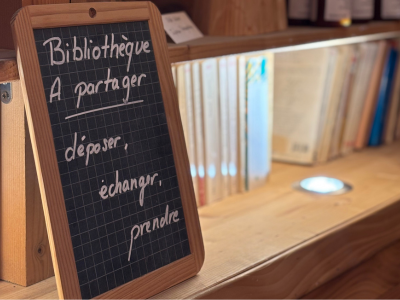 Bibliothèque
A partager
déposer,
échanger,
prendre